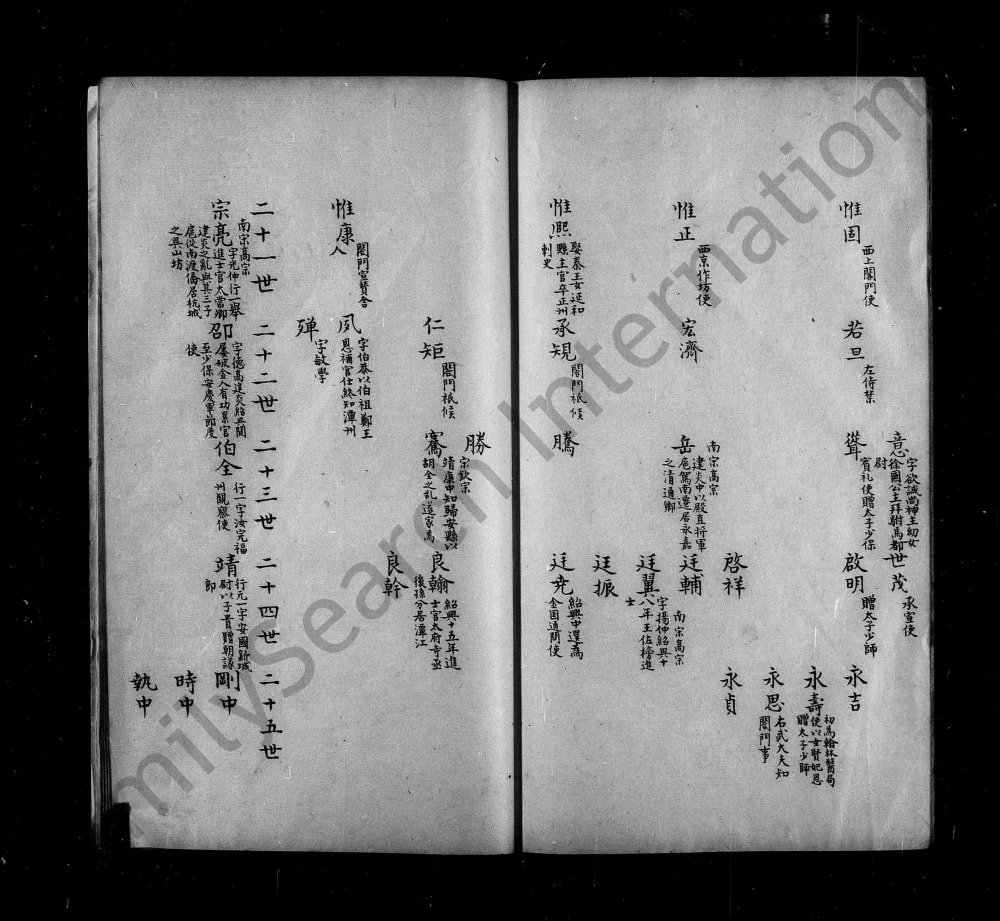 惟固
西上閤門使
若旦
左侍禁
意
字欲誠尚神主幼女
徐國公主拜駙馬都
尉
聳
賓礼使贈太子少保
世茂
承宣使
啟明
贈太子少師
永吉
永壽
初為翰林醫局
使以女賢妃恩
贈太子少師
永思
右武大夫知
閤門事
永貞
惟正
西京作坊使
宏濟
岳
南宗高宗
建炎中以殿直將軍
扈駕南遷居永嘉
之清通鄉
啓祥
廷輔
廷翼
南宗高宗
字揚仲紹興十
八年王佐榜進
士
廷振
惟熈
娶秦王女延和
縣主官卒正州
刺史
承規
閤門祇候
騰
廷尭
紹興中選為
金国通問使
仁矩
閤門祇候
勝
騫
宗欽宗
靖康中知歸安縣以
胡金之乱遂家焉
良翰
紹興十五年進
士官太府寺丞
後孫分居潭江
良幹
惟康
閤門宣贊舍
人
夙
字伯恭以伯祖鄭王
恩補官仕終知潭州
殫
字敏學
二十一世
二十二世
二十三世
二十四世
二十五世
宗亮
南宗高宗
字光仲行一舉
進士官太常卿
建炎之亂與其三子
扈從南渡僑居杭城
之吳山坊
邵
字德高建炎紹興間
屢坡金人有功累官
至少保安慶軍節度
使
伯全
行一字汝完福
州觀察使
靖
行元一字安國新城
尉以子貴贈朝議
郎
剛中
時中
執中
FamilySearch International